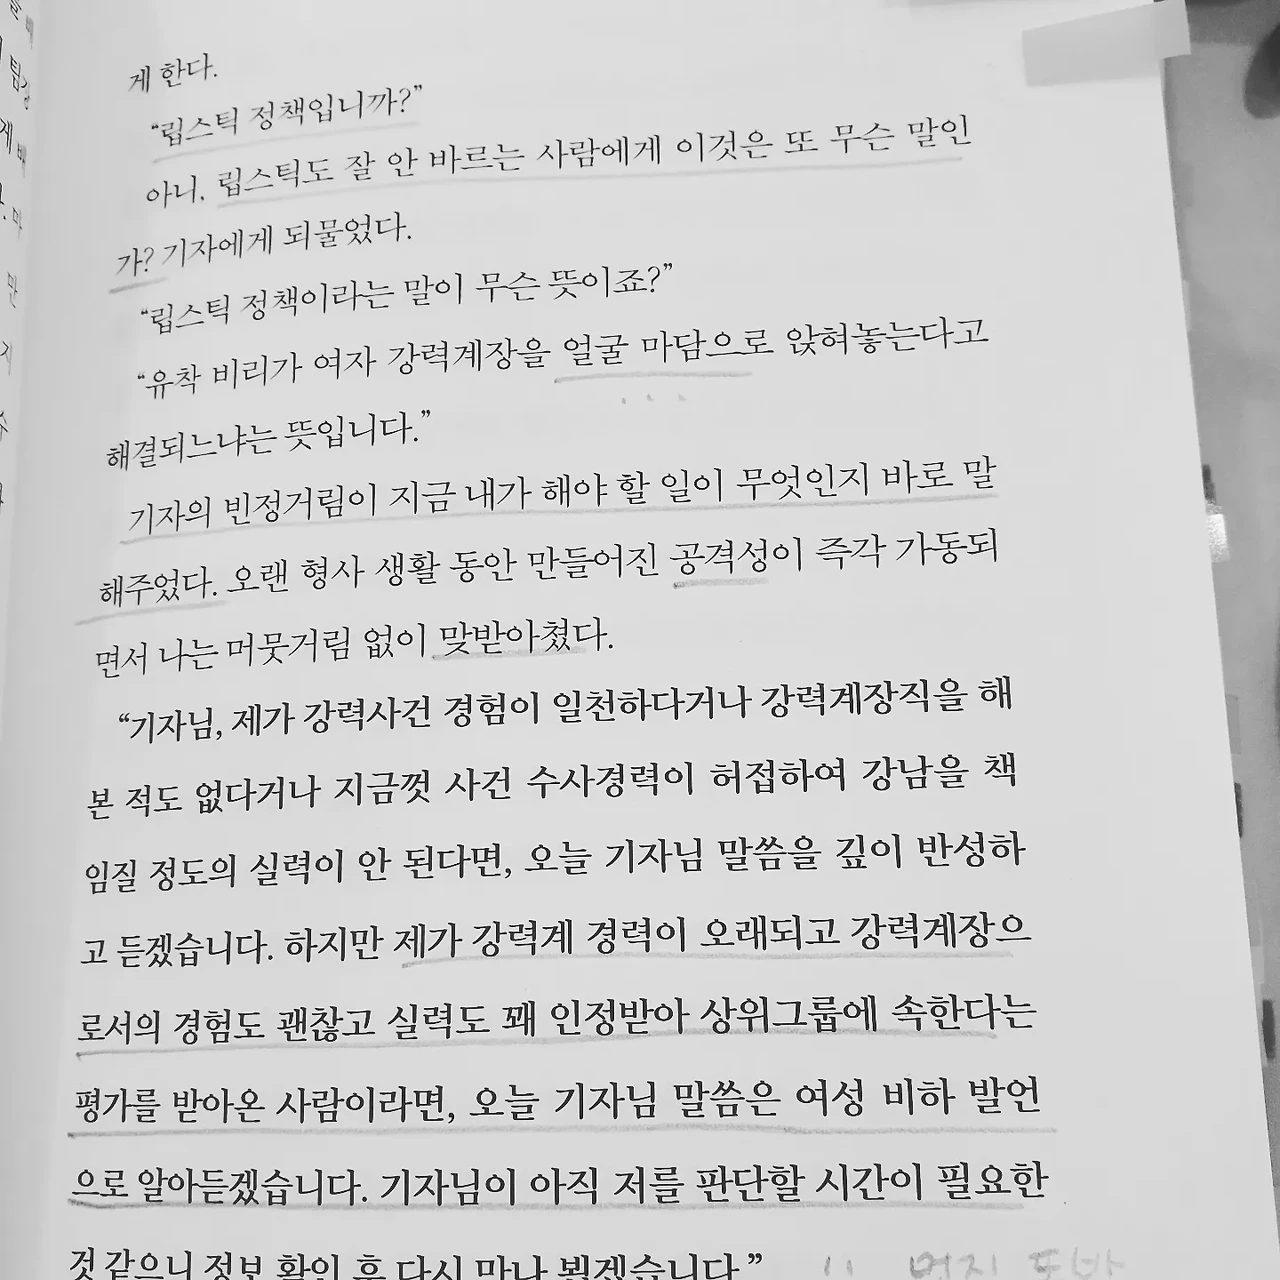 게 한다.
“립스틱 정책입니까?”
아니, 립스틱도 잘 안 바르는 사람에게 이것은 또 무슨 말인
가? 기자에게 되물었다.
“립스틱 정책이라는 말이 무슨 뜻이죠?”
“유착 비리가 여자 강력계장을 얼굴 마담으로 앉혀놓는다고
해결되느냐는 뜻입니다.”
기자의 빈정거림이 지금 내가 해야 할 일이 무엇인지 바로 말
해주었다. 오랜 형사 생활 동안 만들어진 공격성이 즉각 가동되
면서 나는 머뭇거림 없이 맞받아쳤다.
“기자님, 제가 강력사건 경험이 일천하다거나 강력계장직을 해
본 적도 없다거나 지금껏 사건 수사경력이 허접하여 강남을 책
임질 정도의 실력이 안 된다면, 오늘 기자님 말씀을 깊이 반성하
고 듣겠습니다. 하지만 제가 강력계 경력이 오래되고 강력계장으
로서의 경험도 괜찮고 실력도 꽤 인정받아 상위그룹에 속한다는
평가를 받아온 사람이라면, 오늘 기자님 말씀은 여성 비하 발언
으로 알아듣겠습니다. 기자님이 아직 저를 판단할 시간이 필요한
것 같으니 정보 확인 후 다시 만나 뵙겠습니다.”